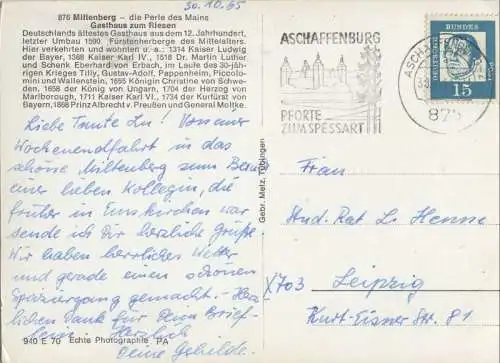 30.10.65
876 Miltenberg – die Perle des Mains
Gasthaus zum Riesen
Deutschlands ältestes Gasthaus aus dem 12. Jahrhundert,
letzter Umbau 1590. Fürstenherberge des Mittelalters.
Hier verkehrten und wohnten u. a.: 1314 Kaiser Ludwig
der Bayer, 1368 Kaiser Karl IV., 1518 Dr. Martin Luther
und Schenk Eberhard von Erbach, im Laufe des 30-jäh-
rigen Krieges Tilly, Gustav-Adolf, Pappenheim, Piccolo-
mini und Wallenstein, 1655 Königin Christine von Schwe-
den, 1658 der König von Ungarn, 1704 der Herzog von
Marlborough, 1711 Kaiser Karl VI., 1734 der Kurfürst von
Bayern, 1868 Prinz Albrecht v. Preußen und General Moltke.
Liebe Tante Lu! Von einer
Wochenendfahrt in das
schöne Miltenberg zum Besuch
einer lieben Kollegin, die
früher in Emskirchen war
sende ich Dir herzliche Grüße.
Wir haben herrliches Wetter
und gerade einen schönen
Spaziergang gemacht. – Herz-
lichen Dank für Dein Brief-
lein. Herzlich
Deine Gehilde.
940 E 70 Echte Photographie PA
Gebr. Metz, Tübingen
ASCHAFFENBURG
PFORTE
ZUM SPESSART
ASCHAFF
875
DEUTSCHE BUNDESPOST
15
Frau
Stud. Rat L. Henne
X703 Leipzig
Kurt-Eisner Str. 81